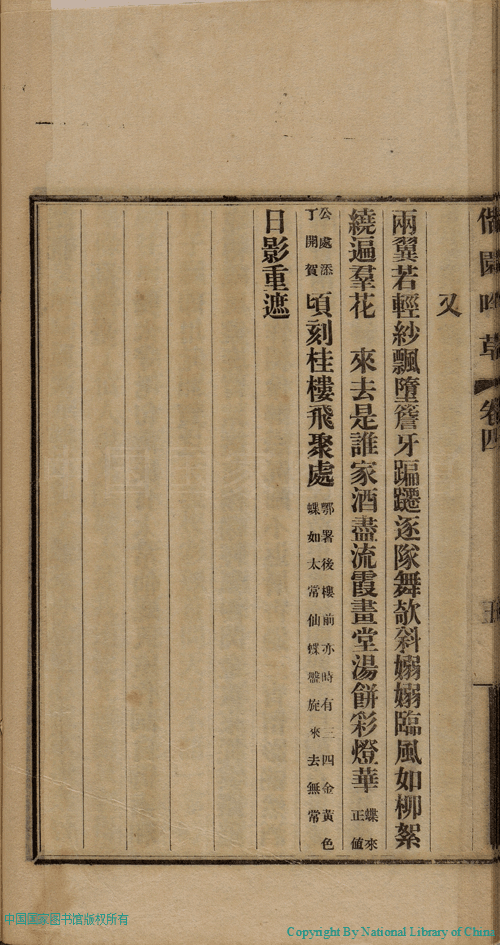 園吟草 卷四 五
又
兩翼若輕紗飄墮簷牙蹁躚逐隊舞欹斜嫋嫋臨風如柳絮
繞遍羣花　來去是誰家酒盡流霞畫堂湯餅彩燈華蝶來正値
公處添丁開賀頃刻桂樓飛聚處鄂署後樓前亦時有三四金黃色蝶如太常仙蝶盤旋來去無常
日影重遮
中国国家图书馆版权所有
Copyright By National Library of China